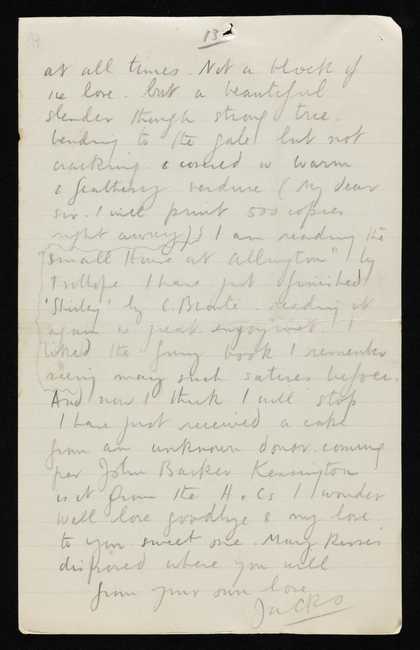 13
at all times. Not a block of
ice love. but a beautiful
slender though strong tree.
bending to the gale but not
cracking & covered w warm
& feathery verdure (My dear
sir. I will print 500 copies
right away)! I am reading the
"Small House at Allington" by
Trollope I have just finished
'Shirley' by C. Bronte. reading it
again w great enjoyment. I
liked the funny book I remember
seeing many such satires before.
And now I think I will stop
I have just received a cake
from an unknown donor. coming
per John Barker Kensington
is it from the H. Cs I wonder
Well love goodbye & my love
to you sweet one. Many kisses
disposed where you will
from your own love
Jacko